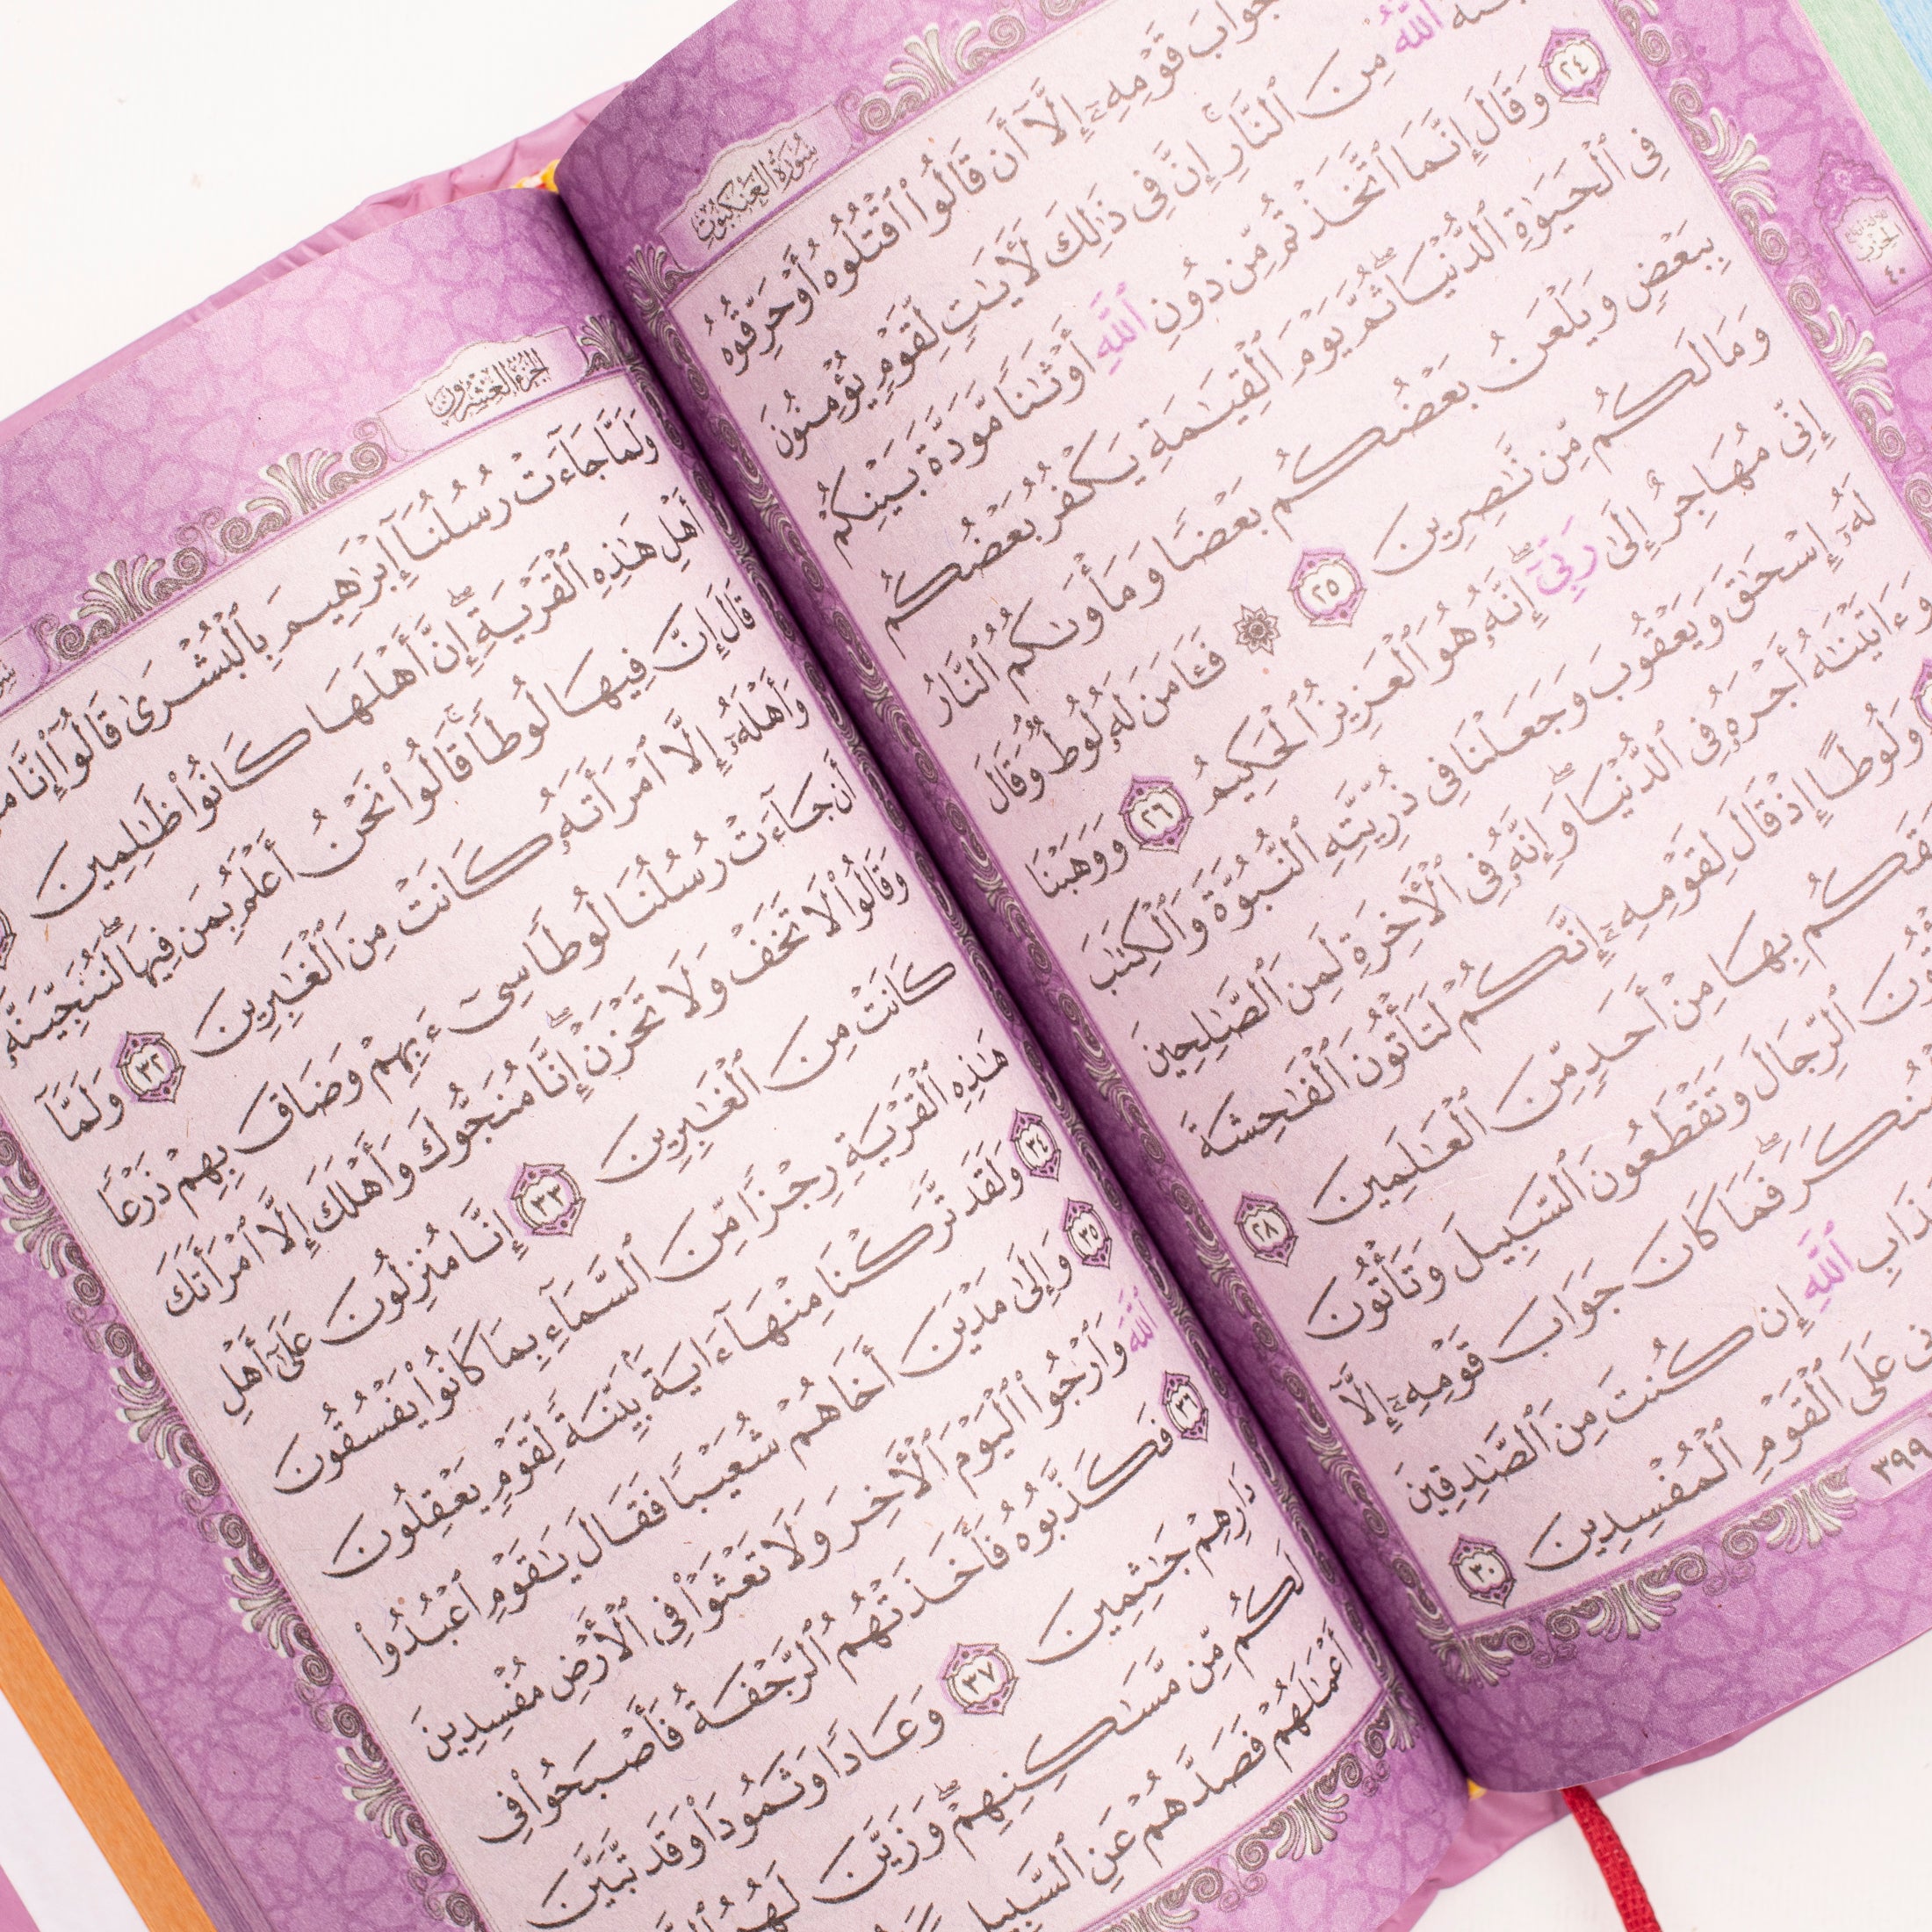 سُورَةُ العَنكَبُوتِ
جَوَابَ قَوْمِهِۦٓ إِلَّآ أَن قَالُوا۟ ٱقْتُلُوهُ أَوْ حَرِّقُوهُ
ٱللَّهُ مِنَ ٱلنَّارِ ۚ إِنَّ فِى ذَٰلِكَ لَـَٔايَـٰتٍ لِّقَوْمٍ يُؤْمِنُونَ
٢٤ وَقَالَ إِنَّمَا ٱتَّخَذْتُم مِّن دُونِ ٱللَّهِ أَوْثَـٰنًا مَّوَدَّةَ بَيْنِكُمْ
فِى ٱلْحَيَوٰةِ ٱلدُّنْيَا ۖ ثُمَّ يَوْمَ ٱلْقِيَـٰمَةِ يَكْفُرُ بَعْضُكُم
بِبَعْضٍ وَيَلْعَنُ بَعْضُكُم بَعْضًا وَمَأْوَىٰكُمُ ٱلنَّارُ
وَمَا لَكُم مِّن نَّـٰصِرِينَ ٢٥ ۞ فَـَٔامَنَ لَهُۥ لُوطٌ ۘ وَقَالَ
إِنِّى مُهَاجِرٌ إِلَىٰ رَبِّىٓ ۖ إِنَّهُۥ هُوَ ٱلْعَزِيزُ ٱلْحَكِيمُ ٢٦ وَوَهَبْنَا
لَهُۥٓ إِسْحَـٰقَ وَيَعْقُوبَ وَجَعَلْنَا فِى ذُرِّيَّتِهِ ٱلنُّبُوَّةَ وَٱلْكِتَـٰبَ
وَءَاتَيْنَـٰهُ أَجْرَهُۥ فِى ٱلدُّنْيَا ۖ وَإِنَّهُۥ فِى ٱلْـَٔاخِرَةِ لَمِنَ ٱلصَّـٰلِحِينَ
وَلُوطًا إِذْ قَالَ لِقَوْمِهِۦٓ إِنَّكُمْ لَتَأْتُونَ ٱلْفَـٰحِشَةَ
بِهَا مِنْ أَحَدٍ مِّنَ ٱلْعَـٰلَمِينَ ٢٨
ٱلرِّجَالَ وَتَقْطَعُونَ ٱلسَّبِيلَ وَتَأْتُونَ
فَمَا كَانَ جَوَابَ قَوْمِهِۦٓ إِلَّآ
ٱللَّهِ إِن كُنتَ مِنَ ٱلصَّـٰدِقِينَ
عَلَى ٱلْقَوْمِ ٱلْمُفْسِدِينَ ٣٠
٣٩٩
الحزب
٤٠
الجُزْءُ العِشْرُونَ
وَلَمَّا جَآءَتْ رُسُلُنَآ إِبْرَٰهِيمَ بِٱلْبُشْرَىٰ قَالُوٓا۟ إِنَّا
أَهْلِ هَـٰذِهِ ٱلْقَرْيَةِ ۖ إِنَّ أَهْلَهَا كَانُوا۟ ظَـٰلِمِينَ
قَالَ إِنَّ فِيهَا لُوطًا ۚ قَالُوا۟ نَحْنُ أَعْلَمُ بِمَن فِيهَا ۖ لَنُنَجِّيَنَّهُۥ
وَأَهْلَهُۥٓ إِلَّا ٱمْرَأَتَهُۥ كَانَتْ مِنَ ٱلْغَـٰبِرِينَ ٣٢ وَلَمَّآ
أَن جَآءَتْ رُسُلُنَا لُوطًا سِىٓءَ بِهِمْ وَضَاقَ بِهِمْ ذَرْعًا
وَقَالُوا۟ لَا تَخَفْ وَلَا تَحْزَنْ ۖ إِنَّا مُنَجُّوكَ وَأَهْلَكَ إِلَّا ٱمْرَأَتَكَ
كَانَتْ مِنَ ٱلْغَـٰبِرِينَ ٣٣ إِنَّا مُنزِلُونَ عَلَىٰٓ أَهْلِ
هَـٰذِهِ ٱلْقَرْيَةِ رِجْزًا مِّنَ ٱلسَّمَآءِ بِمَا كَانُوا۟ يَفْسُقُونَ
٣٤ وَلَقَد تَّرَكْنَا مِنْهَآ ءَايَةًۢ بَيِّنَةً لِّقَوْمٍ يَعْقِلُونَ
٣٥ وَإِلَىٰ مَدْيَنَ أَخَاهُمْ شُعَيْبًا فَقَالَ يَـٰقَوْمِ ٱعْبُدُوا۟
ٱللَّهَ وَٱرْجُوا۟ ٱلْيَوْمَ ٱلْـَٔاخِرَ وَلَا تَعْثَوْا۟ فِى ٱلْأَرْضِ مُفْسِدِينَ
٣٦ فَكَذَّبُوهُ فَأَخَذَتْهُمُ ٱلرَّجْفَةُ فَأَصْبَحُوا۟ فِى
دَارِهِمْ جَـٰثِمِينَ ٣٧ وَعَادًا وَثَمُودَا۟ وَقَد تَّبَيَّنَ
لَكُم مِّن مَّسَـٰكِنِهِمْ ۖ وَزَيَّنَ لَهُمُ
أَعْمَـٰلَهُمْ فَصَدَّهُمْ عَنِ ٱلسَّبِيلِ